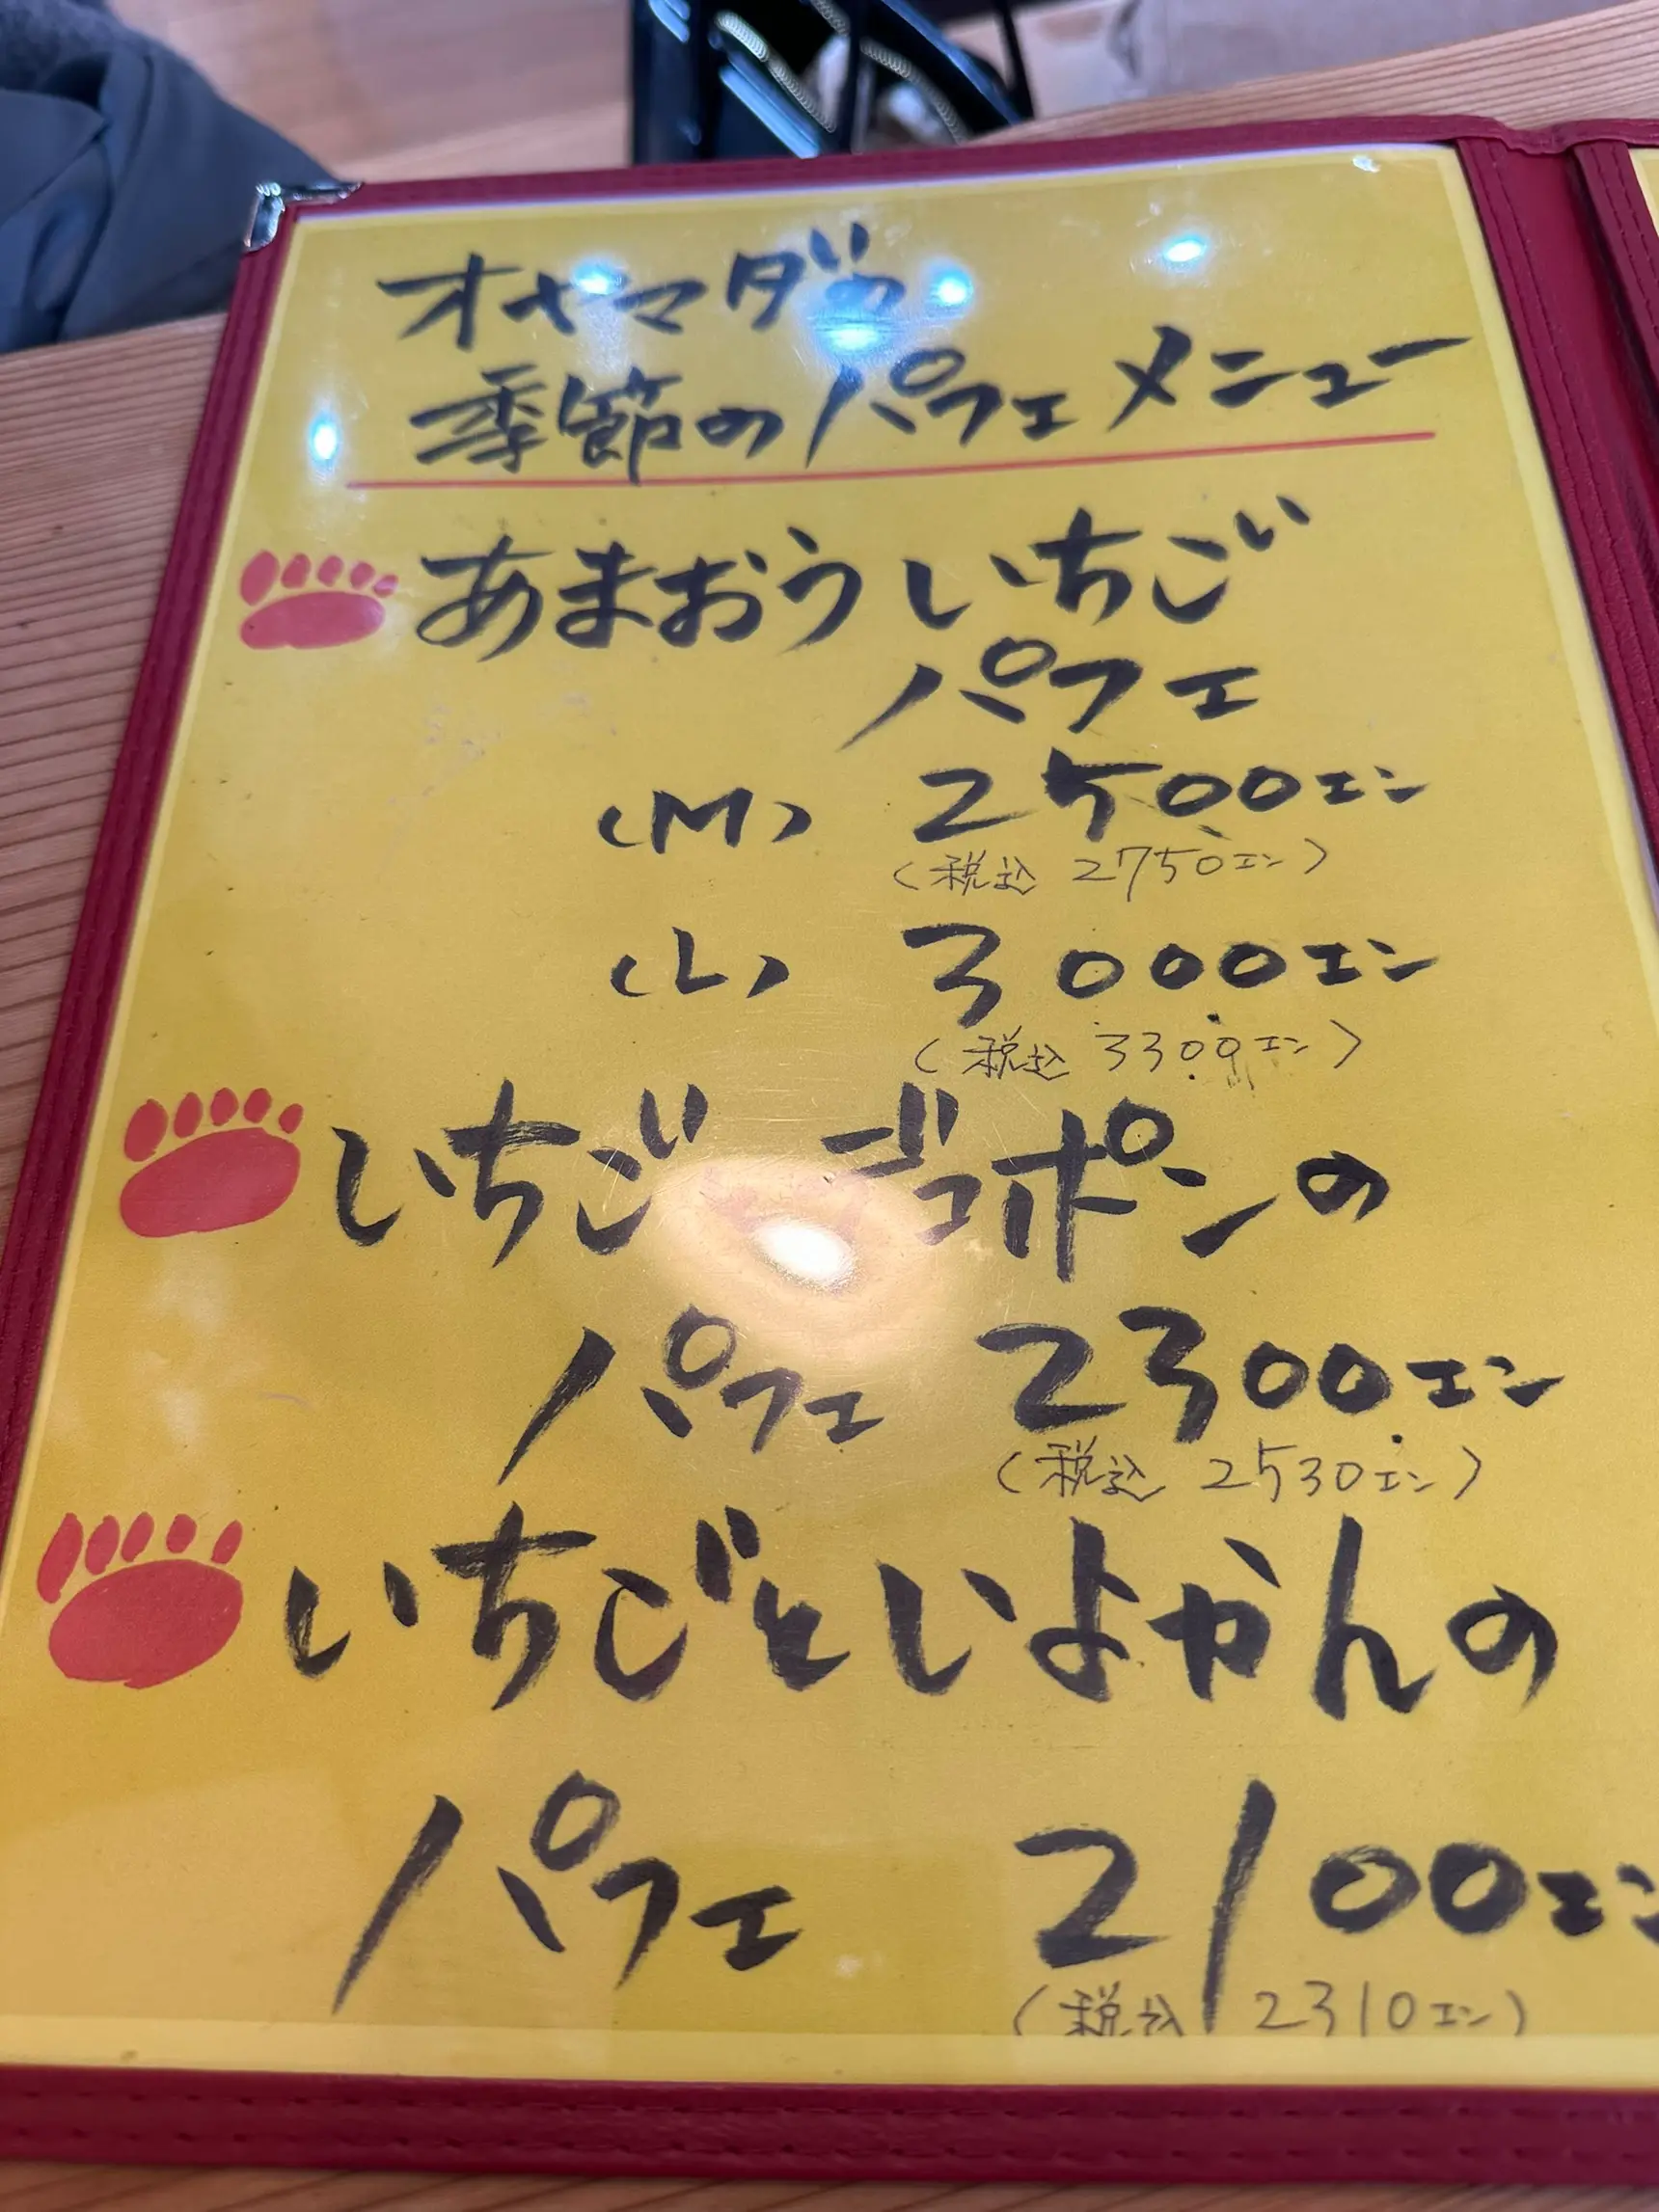 オヤマダの
季節のパフェメニュー
あまおういちご
パフェ
(M) 2500エン
(税込 2750エン)
(L) 3000エン
(税込 3300エン)
いちご デコポンの
パフェ 2300エン
(税込 2530エン)
いちごといよかんの
パフェ 2100エン
(税込 2310エン)